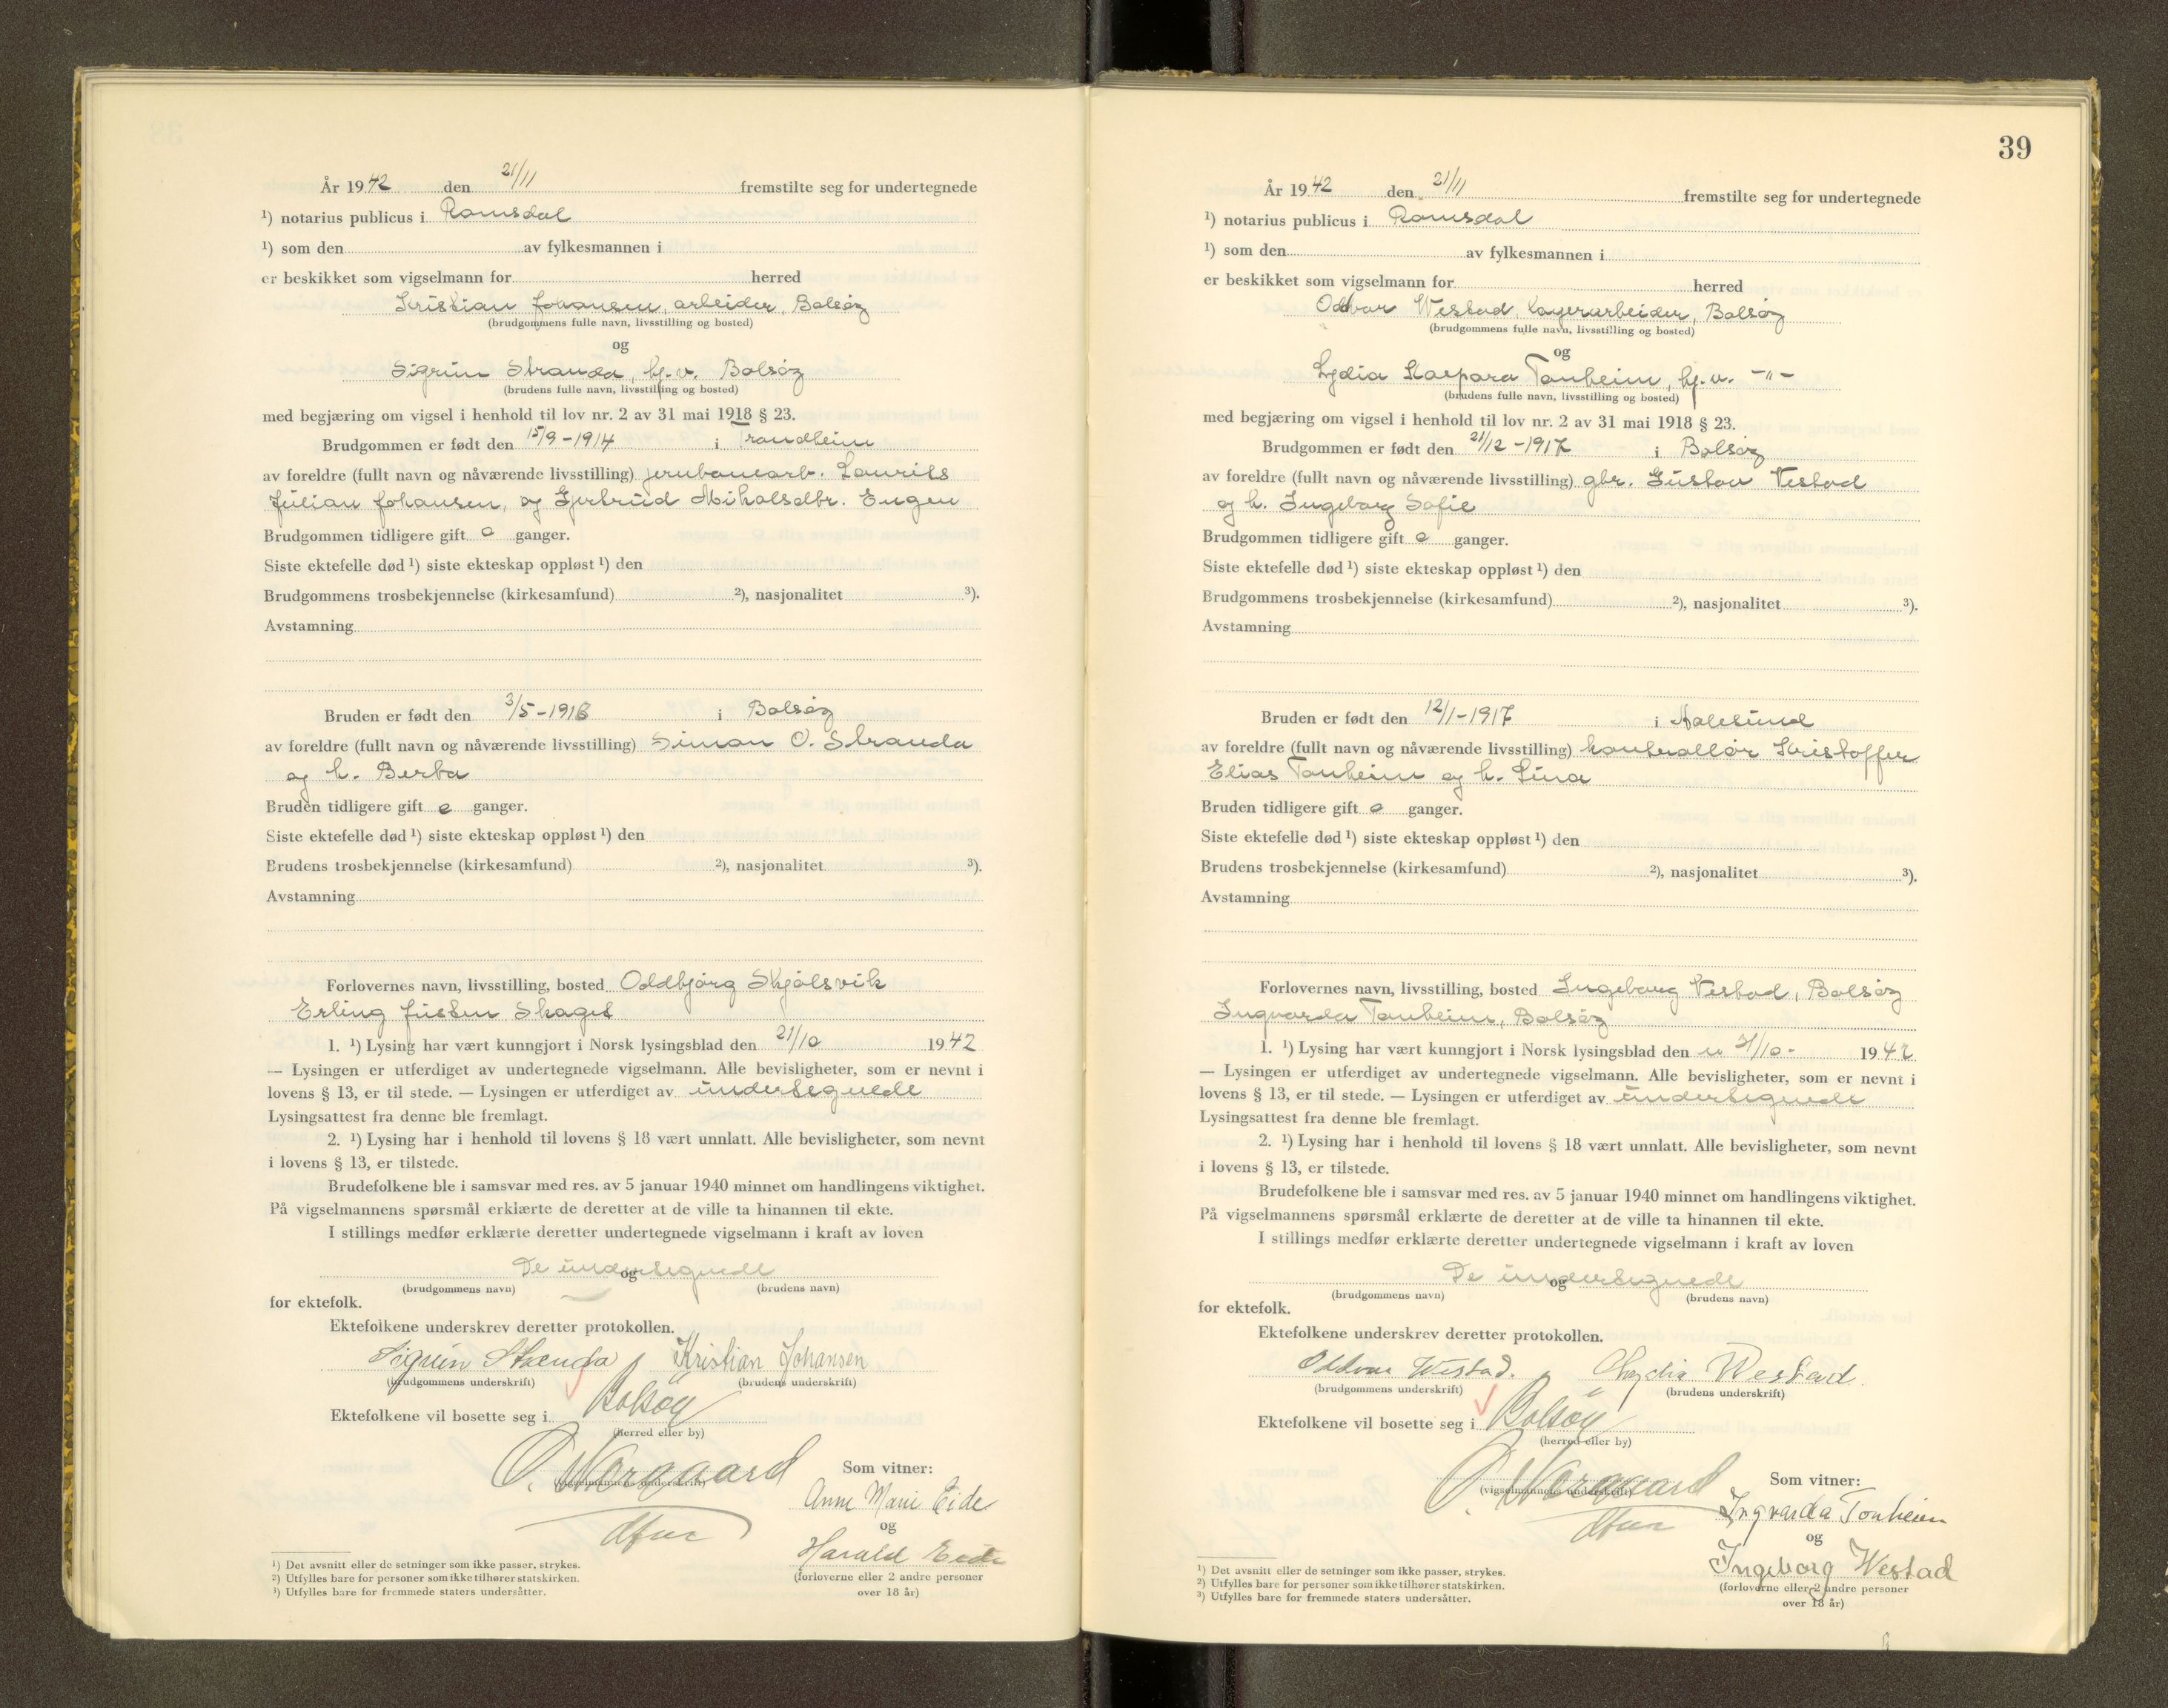 År 1942 den 21/11 fremstilte seg for undertegnede
¹) notarius publicus i Romsdal
¹) som den av fylkesmannen i
er beskikket som vigselmann for herred
Kristian Johansen, arbeider, Bolsøy
(brudgommens fulle navn, livsstilling og bosted)
og
Sigrun Stranda, hj.v. Bolsøy
(brudens fulle navn, livsstilling og bosted)
med begjæring om vigsel i henhold til lov nr. 2 av 31 mai 1918 § 23.
Brudgommen er født den 15/9-1914 i Trondheim
av foreldre (fullt navn og nåværende livsstilling) jernbanearb. Laurits
Julian Johansen, og Gjertrud Mikalsdtr. Engen
Brudgommen tidligere gift 0 ganger.
Siste ektefelle død ¹) siste ekteskap oppløst ¹) den
Brudgommens trosbekjennelse (kirkesamfund) ²), nasjonalitet ³).
Avstamning
Bruden er født den 3/5-1918 i Bolsøy
av foreldre (fullt navn og nåværende livsstilling) Simon O. Stranda
og h. Berta
Bruden tidligere gift 0 ganger.
Siste ektefelle død ¹) siste ekteskap oppløst ¹) den
Brudens trosbekjennelse (kirkesamfund) ²), nasjonalitet ³).
Avstamning
Forlovernes navn, livsstilling, bosted Oddbjørg Skjølsvik
Erling Justen
1. ¹) Lysing har vært kunngjort i Norsk lysingsblad den 21/10 1942
— Lysingen er utferdiget av undertegnede vigselmann. Alle bevisligheter, som er nevnt i
lovens § 13, er til stede. — Lysingen er utferdiget av undertegnede
Lysingsattest fra denne ble fremlagt.
2. ¹) Lysing har i henhold til lovens § 18 vært unnlatt. Alle bevisligheter, som nevnt
i lovens § 13, er tilstede.
Brudefolkene ble i samsvar med res. av 5 januar 1940 minnet om handlingens viktighet.
På vigselmannens spørsmål erklærte de deretter at de ville ta hinannen til ekte.
I stillings medfør erklærte deretter undertegnede vigselmann i kraft av loven
De undertegnede
og
(brudgommens navn) (brudens navn)
for ektefolk.
Ektefolkene underskrev deretter protokollen.
Sigrun Stranda Kristian Johansen
(brudgommens underskrift) (brudens underskrift)
Ektefolkene vil bosette seg i Bolsøy
(herred eller by)
O. Norgaard
(vigselmannens underskrift)
Som vitner:
Anne Marie Eide
og
Harald Eide
(forloverne eller 2 andre personer
over 18 år)
¹) Det avsnitt eller de setninger som ikke passer, strykes.
²) Utfylles bare for personer som ikke tilhører statskirken.
³) Utfylles bare for fremmede staters undersåtter.
39
År 1942 den 21/11 fremstilte seg for undertegnede
¹) notarius publicus i Romsdal
¹) som den av fylkesmannen i
er beskikket som vigselmann for herred
Oddvar Westad, lagerarbeider, Bolsøy
(brudgommens fulle navn, livsstilling og bosted)
og
Lydia Kaspara Tonheim, hj.v. -"-
(brudens fulle navn, livsstilling og bosted)
med begjæring om vigsel i henhold til lov nr. 2 av 31 mai 1918 § 23.
Brudgommen er født den 21/12-1917 i Bolsøy
av foreldre (fullt navn og nåværende livsstilling) gbr. Gustav Vestad
og h. Ingeborg Sofie
Brudgommen tidligere gift 0 ganger.
Siste ektefelle død ¹) siste ekteskap oppløst ¹) den
Brudgommens trosbekjennelse (kirkesamfund) ²), nasjonalitet ³).
Avstamning
Bruden er født den 12/1-1917 i Aalesund
av foreldre (fullt navn og nåværende livsstilling) kontrollør Kristoffer
Elias Tonheim og h. Lina
Bruden tidligere gift 0 ganger.
Siste ektefelle død ¹) siste ekteskap oppløst ¹) den
Brudens trosbekjennelse (kirkesamfund) ²), nasjonalitet ³).
Avstamning
Forlovernes navn, livsstilling, bosted Ingeborg Vestad, Bolsøy
Ingvarda Tonheim, Bolsøy
1. ¹) Lysing har vært kunngjort i Norsk lysingsblad den 21/10- 1942
— Lysingen er utferdiget av undertegnede vigselmann. Alle bevisligheter, som er nevnt i
lovens § 13, er til stede. — Lysingen er utferdiget av undertegnede
Lysingsattest fra denne ble fremlagt.
2. ¹) Lysing har i henhold til lovens § 18 vært unnlatt. Alle bevisligheter, som nevnt
i lovens § 13, er tilstede.
Brudefolkene ble i samsvar med res. av 5 januar 1940 minnet om handlingens viktighet.
På vigselmannens spørsmål erklærte de deretter at de ville ta hinannen til ekte.
I stillings medfør erklærte deretter undertegnede vigselmann i kraft av loven
De undertegnede
og
(brudgommens navn) (brudens navn)
for ektefolk.
Ektefolkene underskrev deretter protokollen.
Oddvar Westad. Westad
(brudgommens underskrift) (brudens underskrift)
Ektefolkene vil bosette seg i Bolsøy
(herred eller by)
O. Norgaard
(vigselmannens underskrift)
Som vitner:
Ingvarda Tonheim
og
Ingeborg Westad
(forloverne eller 2 andre personer
over 18 år)
¹) Det avsnitt eller de setninger som ikke passer, strykes.
²) Utfylles bare for personer som ikke tilhører statskirken.
³) Utfylles bare for fremmede staters undersåtter.